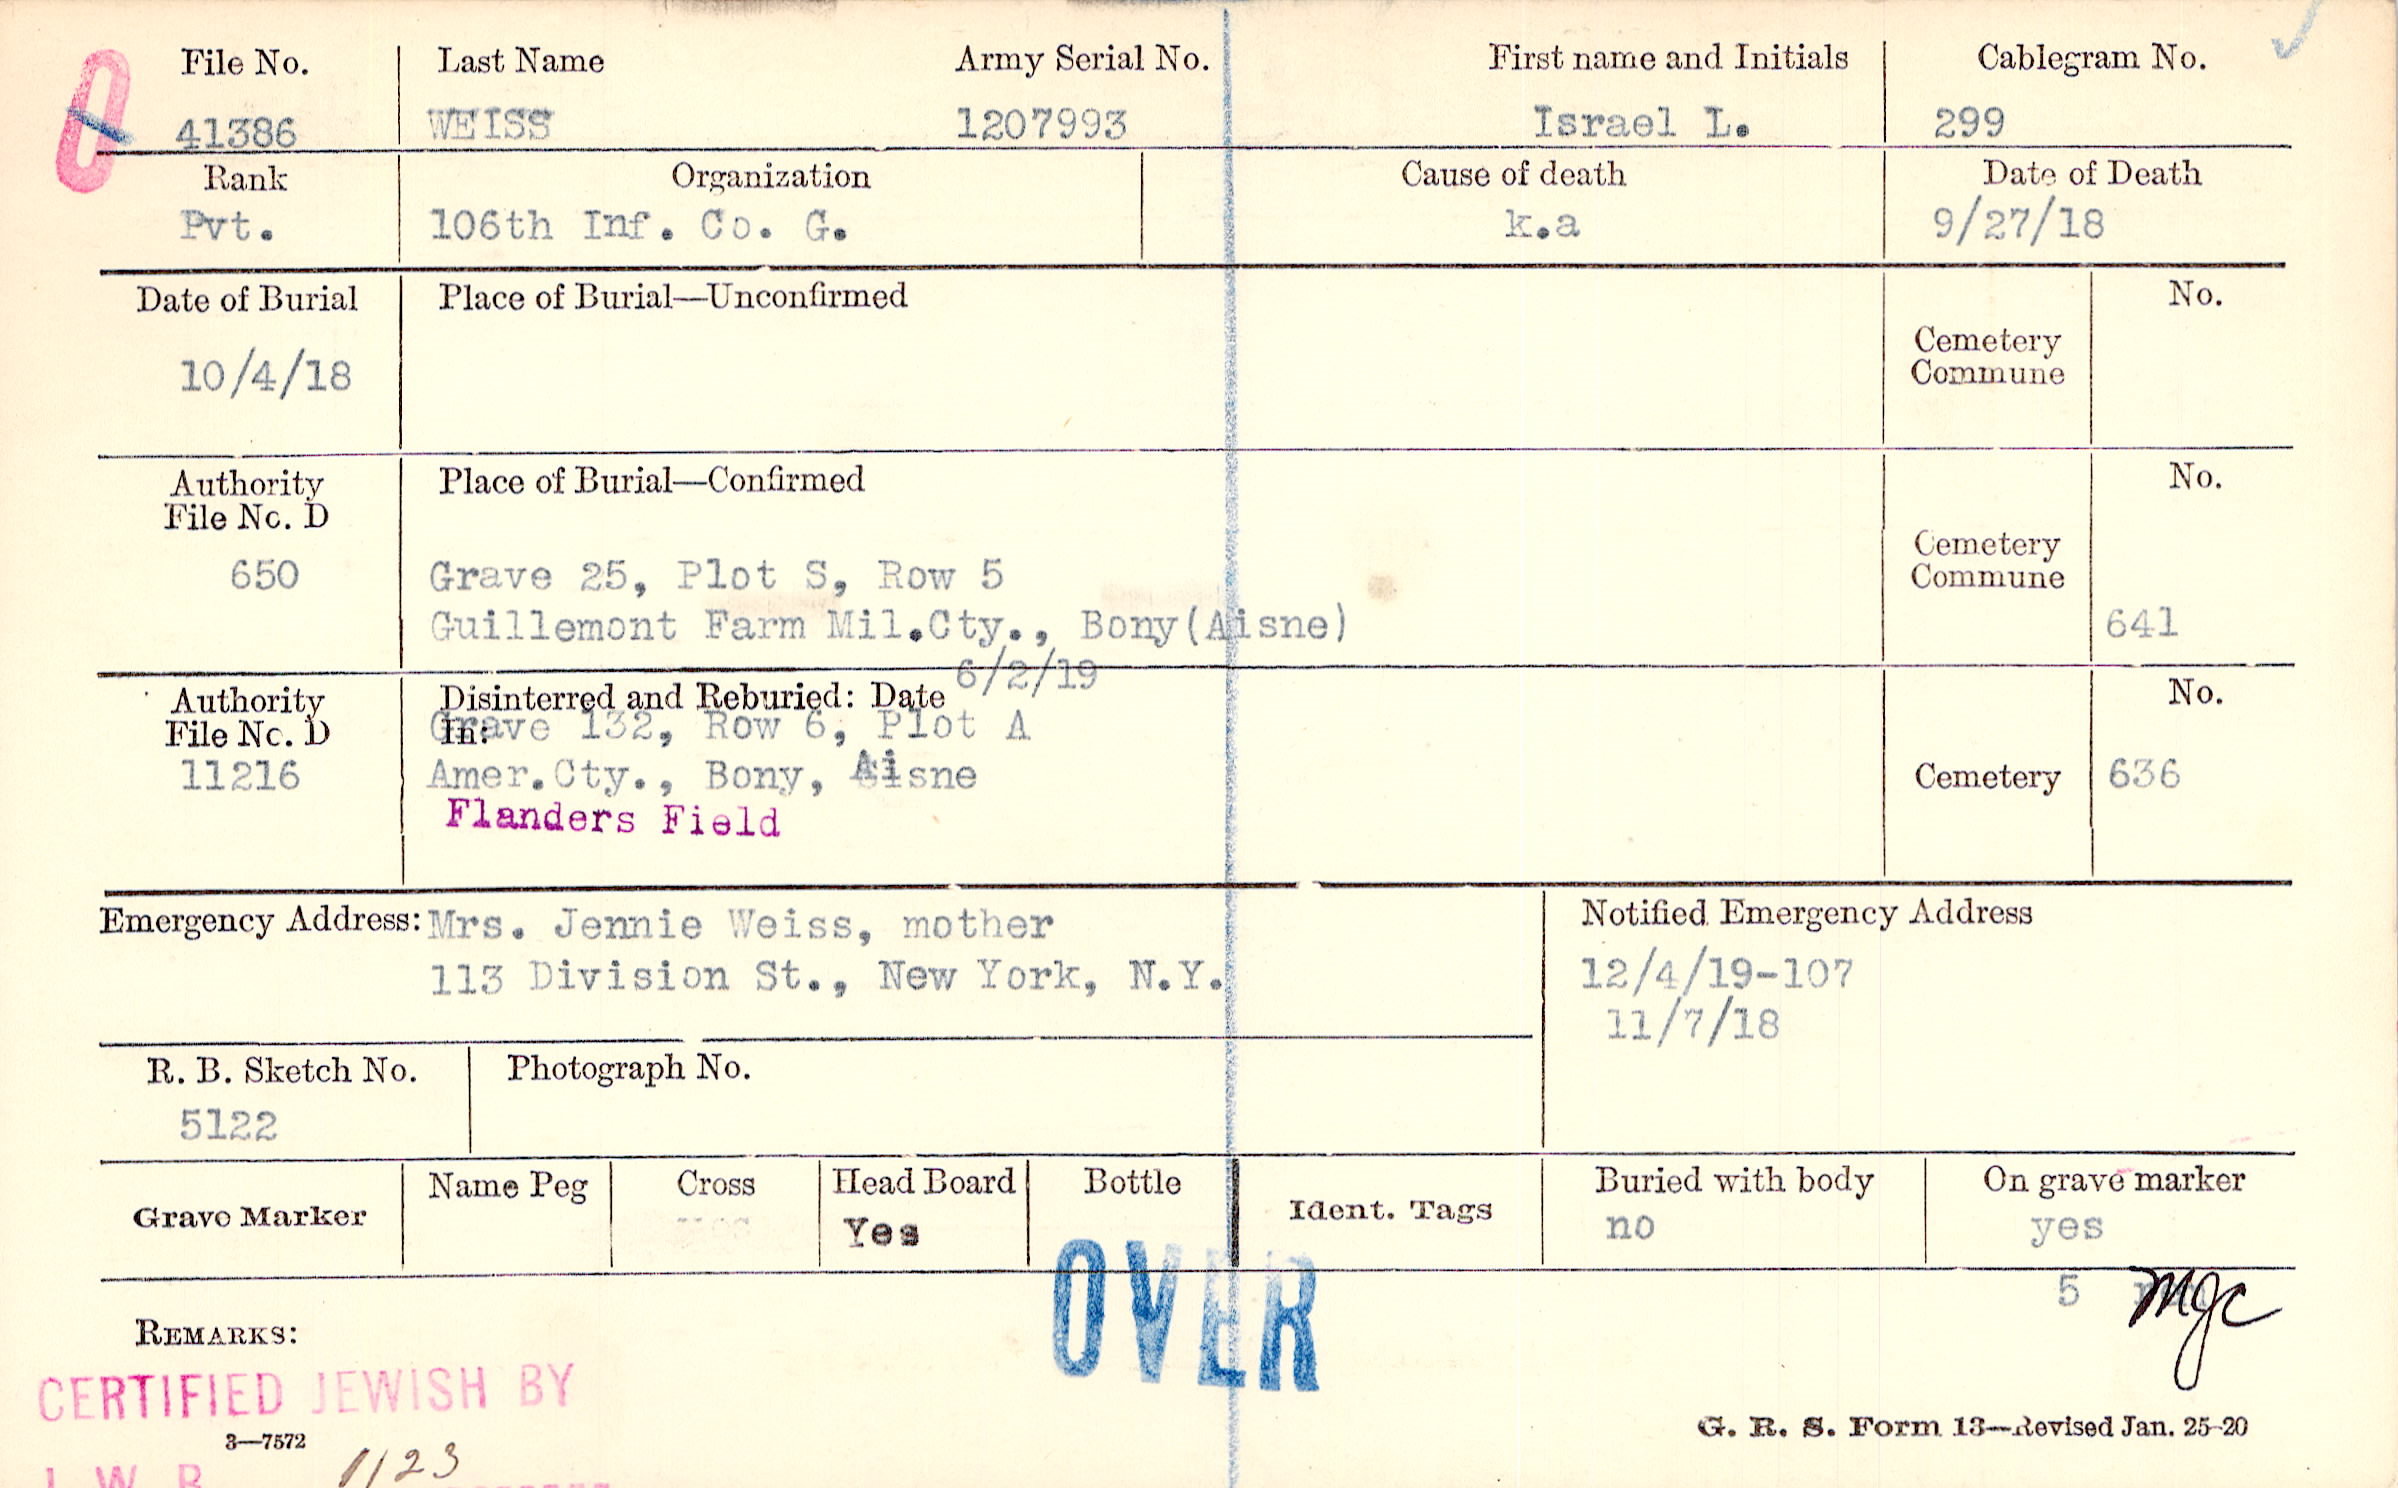 File No. Last Name Army Serial No. First name and Initials Cablegram No.
41386 WEISS 1207993 Israel L. 299
Rank Organization Cause of death Date of Death
Pvt. 106th Inf. Co. G. k.a 9/27/18
Date of Burial Place of Burial—Unconfirmed No.
10/4/18
Cemetery
Commune
Authority Place of Burial—Confirmed No.
File No. D
650 Grave 25, Plot S, Row 5
Cemetery
Commune
Guillemont Farm Mil.Cty., Bony(Aisne) 641
Authority Disinterred and Reburied: Date 6/2/19 No.
File No. D In: Grave 132, Row 6, Plot A
11216 Amer.Cty., Bony, Aisne Cemetery 636
Flanders Field
Emergency Address: Mrs. Jennie Weiss, mother Notified Emergency Address
113 Division St., New York, N.Y. 12/4/19-107
11/7/18
R. B. Sketch No. Photograph No.
5122
Grave Marker Name Peg Cross Head Board Bottle Ident. Tags Buried with body On grave marker
Yes no yes
5 mgc
OVER
REMARKS:
CERTIFIED JEWISH BY
3—7572
G. R. S. Form 13—Revised Jan. 25-20
J. W. B. 1123